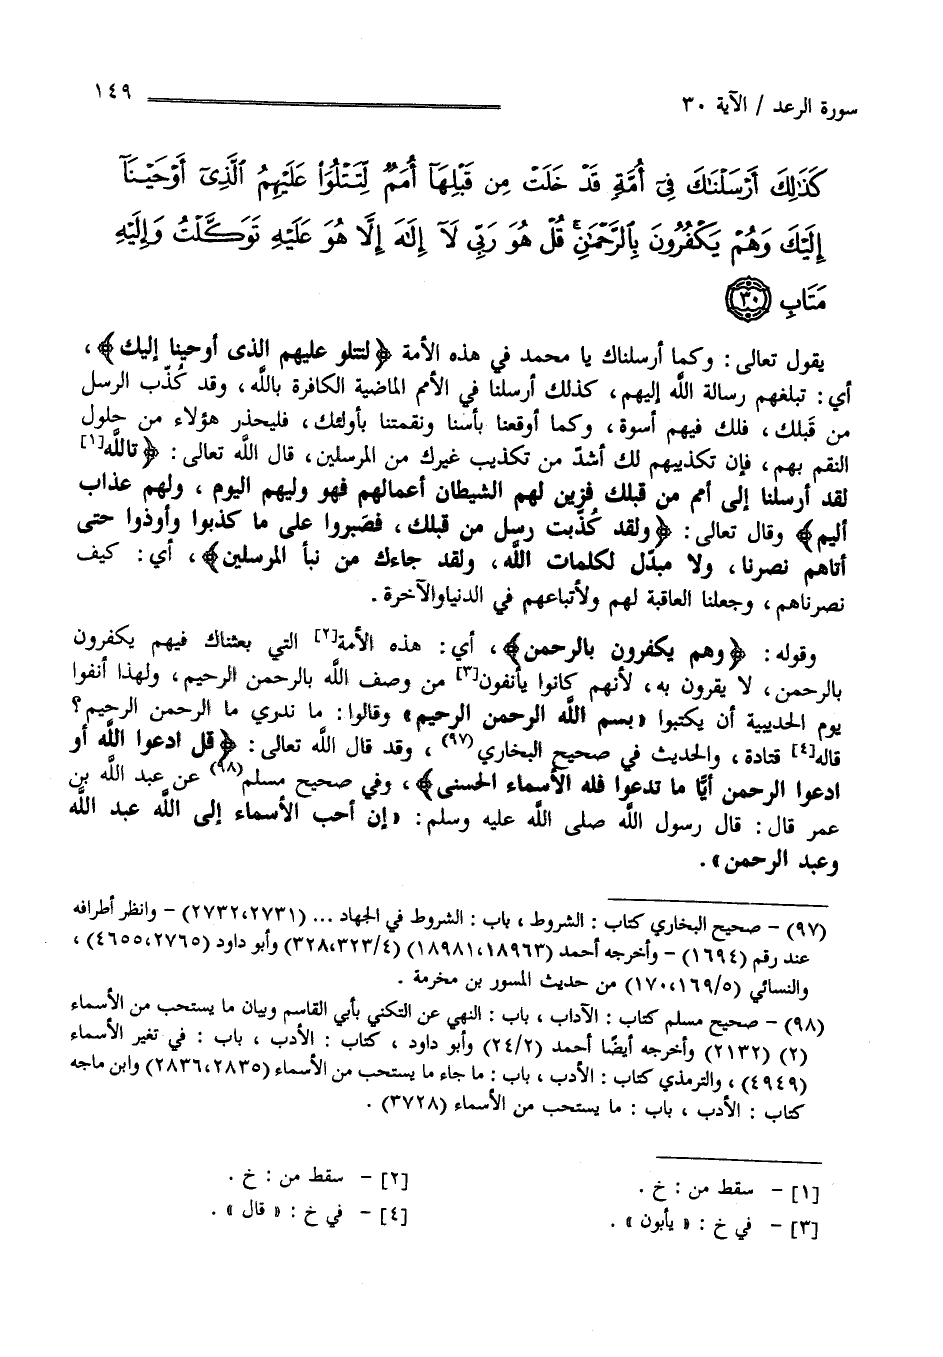 سورة الرعد / الآية ٣٠
١٤٩
كَذَٰلِكَ أَرْسَلْنَٰكَ فِىٓ أُمَّةٍ قَدْ خَلَتْ مِن قَبْلِهَآ أُمَمٌ لِّتَتْلُوَا۟ عَلَيْهِمُ ٱلَّذِىٓ أَوْحَيْنَآ
إِلَيْكَ وَهُمْ يَكْفُرُونَ بِٱلرَّحْمَٰنِ ۚ قُلْ هُوَ رَبِّى لَآ إِلَٰهَ إِلَّا هُوَ عَلَيْهِ تَوَكَّلْتُ وَإِلَيْهِ
مَتَابِ ٣٠
يقول تعالى : وكما أرسلناك يا محمد في هذه الأمة ﴿لتتلو عليهم الذى أوحينا إليك﴾ ،
أي : تبلغهم رسالة اللَّه إليهم ، كذلك أرسلنا في الأمم الماضية الكافرة باللَّه ، وقد كُذّب الرسل
من قَبلك ، فلك فيهم أسوة ، وكما أوقعنا بأسنا ونقمتنا بأولئك ، فليحذر هؤلاء من حلول
النقم بهم ، فإن تكذيبهم لك أشدّ من تكذيب غيرك من المرسلين ، قال اللَّه تعالى : ﴿تاللَّه[١]
لقد أرسلنا إلى أمم من قبلك فزين لهم الشيطان أعمالهم فهو وليهم اليوم ، ولهم عذاب
أليم﴾ وقال تعالى : ﴿ولقد كُذِّبت رسل من قبلك ، فصَبروا على ما كذبوا وأوذوا حتى
أتاهم نصرنا ، ولا مبدّل لكلمات اللَّه ، ولقد جاءك من نبأ المرسلين﴾ ، أي : كيف
نصرناهم ، وجعلنا العاقبة لهم ولأتباعهم في الدنياوالآخرة .
وقوله : ﴿وهم يكفرون بالرحمن﴾ ، أي : هذه الأمة[٢] التي بعثناك فيهم يكفرون
بالرحمن ، لا يقرون به ، لأنهم كانوا يأنفون[٣] من وصف اللَّه بالرحمن الرحيم ، ولهذا أنفوا
يوم الحديبية أن يكتبوا «بسم اللَّه الرحمن الرحيم» وقالوا : ما ندري ما الرحمن الرحيم ؟
قاله[٤] قتادة ، والحديث في صحيح البخاري(٩٧) ، وقد قال اللَّه تعالى : ﴿قل ادعوا اللَّه أو
ادعوا الرحمن أيًّا ما تدعوا فله الأسماء الحسنى﴾ ، وفي صحيح مسلم(٩٨) عن عبد اللَّه بن
عمر قال : قال رسول اللَّه صلى اللَّه عليه وسلم : «إن أحب الأسماء إلى اللَّه عبد اللَّه
وعبد الرحمن» .
(٩٧) – صحيح البخاري كتاب : الشروط ، باب : الشروط في الجهاد ... (٢٧٣١،٢٧٣٢) – وانظر أطرافه
عند رقم (١٦٩٤) – وأخرجه أحمد (١٨٩٦٣،١٨٩٨١) (٣٢٣/٤،٣٢٨) وأبو داود (٢٧٦٥،٤٦٥٥) ،
والنسائي (١٦٩/٥،١٧٠) من حديث المسور بن مخرمة .
(٩٨) – صحيح مسلم كتاب : الآداب ، باب : النهي عن التكني بأبي القاسم وبيان ما يستحب من الأسماء
(٢) (٢١٣٢) وأخرجه أيضًا أحمد (٢٤/٢) وأبو داود ، كتاب : الأدب ، باب : في تغير الأسماء
(٤٩٤٩) ، والترمذي كتاب : الأدب ، باب : ما جاء ما يستحب من الأسماء (٢٨٣٥،٢٨٣٦) وابن ماجه
كتاب : الأدب ، باب : ما يستحب من الأسماء (٣٧٢٨) .
[١] – سقط من : خ .
[٢] – سقط من : خ .
[٣] – في خ : « يأبون » .
[٤] – في خ : « قال » .